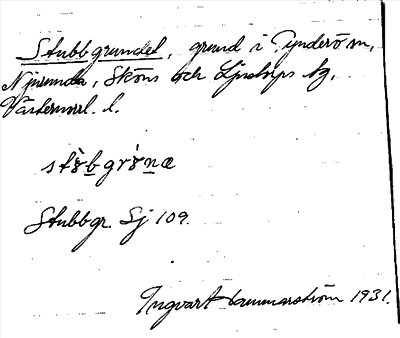 Stubbgrundet, grund i Tynderö sn,
Njurunda, Sköns och Ljustorps tg,
Västernorrl. l.
stubgrunæ
Stubbgr. Sj 109.
Ingvart Hammarström 1931.